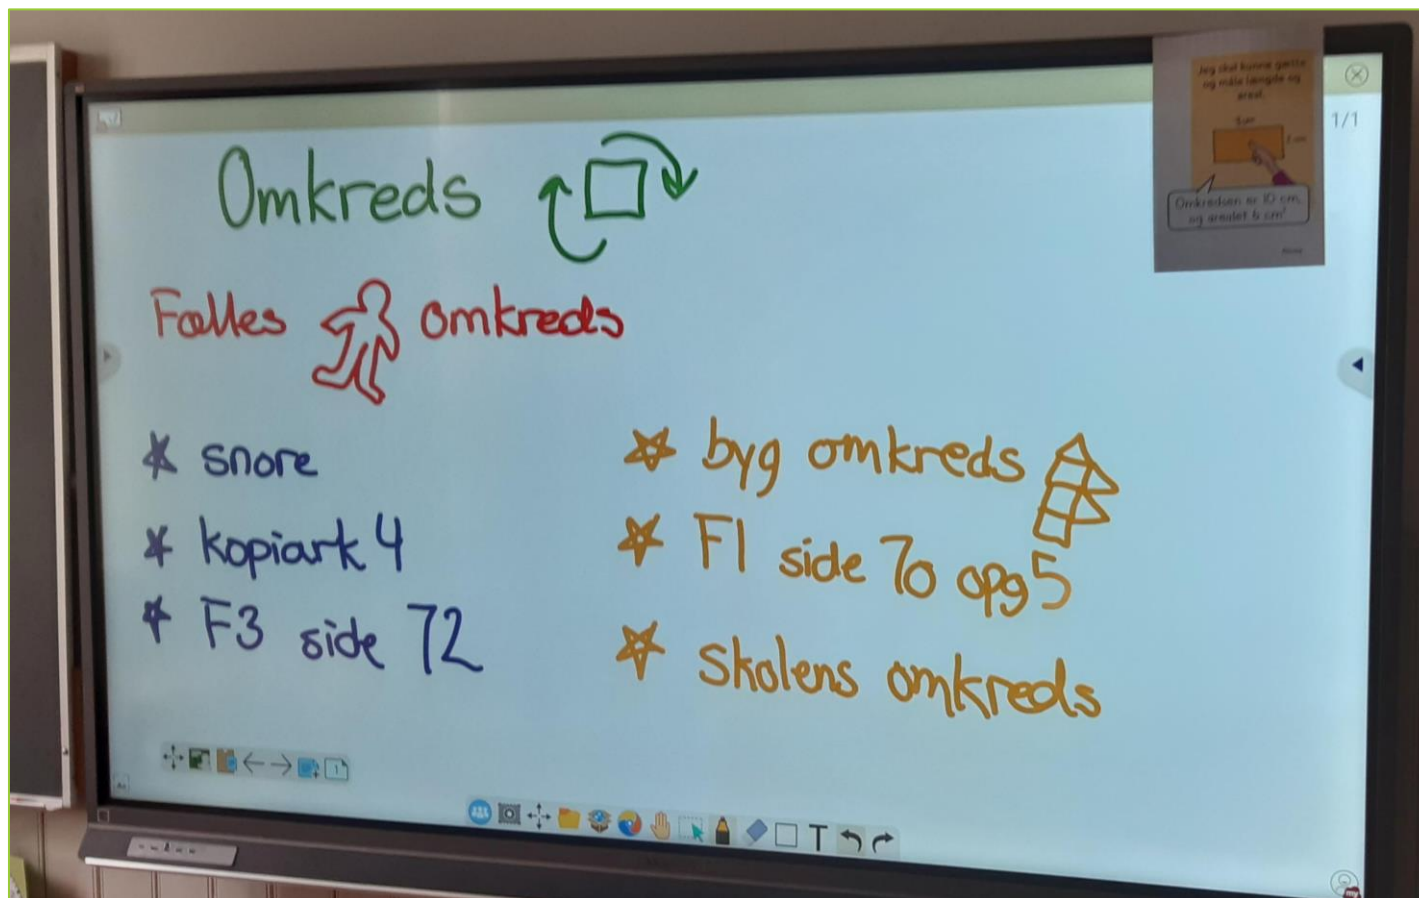 Omkreds
Fælles omkreds
* snore
* kopiark 4
* F3 side 72
☆ byg omkreds
☆ F1 side 70 opg 5
☆ Skolens omkreds
Jeg skal kunne gætte
og måle længde og
areal.
Omkredsen er 10 cm,
og arealet 6 cm²
1/1
T